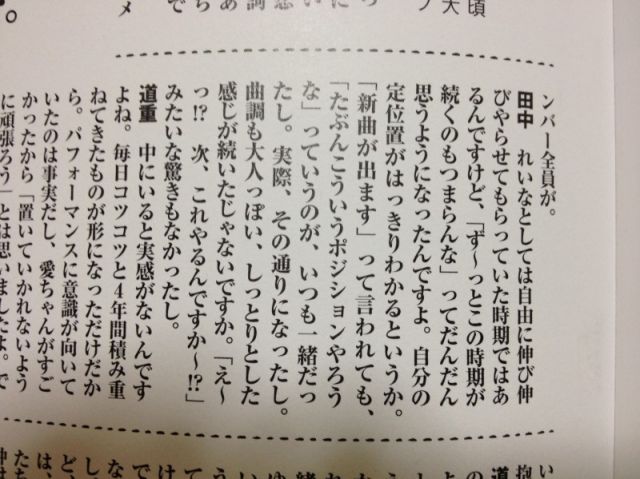 頃
大
ンバー全員が。
田中 れいなとしては自由に伸び伸
びやらせてもらっていた時期ではあ
るんですけど、「ず〜っとこの時期が
続くのもつまらんな」ってだんだん
思うようになったんですよ。自分の
定位置がはっきりわかるというか。
「新曲が出ます」って言われても、
「たぶんこういうポジションやろう
な」っていうのが、いつも一緒だっ
たし。実際、その通りになったし。
曲調も大人っぽい、しっとりとした
感じが続いたじゃないですか。「え〜
っ!? 次、これやるんですか〜!?」
みたいな驚きもなかったし。
道重 中にいると実感がないんです
よね。毎日コツコツと4年間積み重
ねてきたものが形になっただけだか
ら。パフォーマンスに意識が向いて
いたのは事実だし、愛ちゃんがすご
かったから「置いていかれないよう
に頑張ろう」とは思いましたよ。で